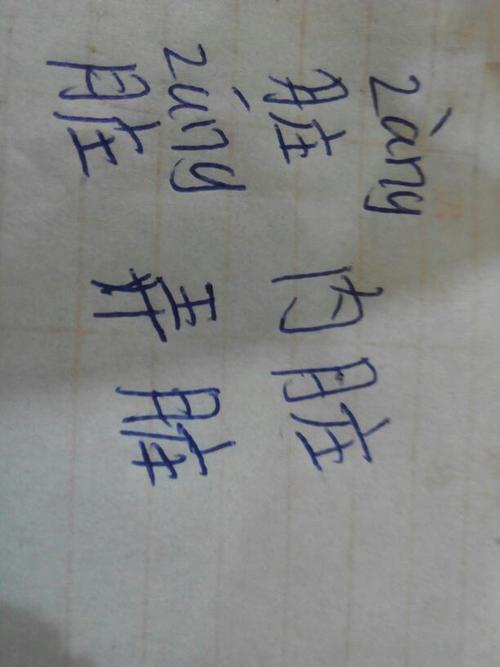 zàng
脏 内脏
záng
脏 弄脏